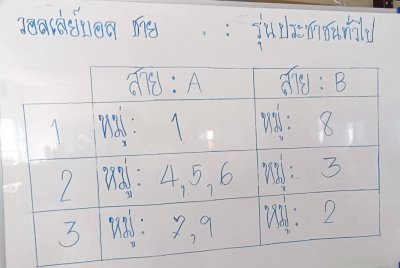 วอลเล่ย์บอล ชาย . : รุ่นประชาชนทั่วไป
สาย : A สาย : B
1 หมู่ : 1 หมู่ : 8
2 หมู่ : 4,5,6 หมู่ : 3
3 หมู่ : 7,9 หมู่ : 2